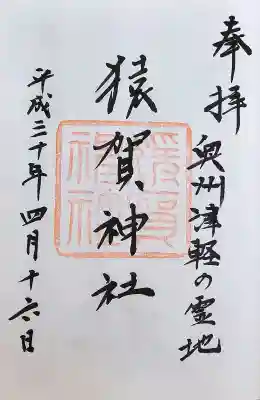 奉拝
奥州津軽の霊地
猿賀神社
猿賀神社
平成三十年四月十六日